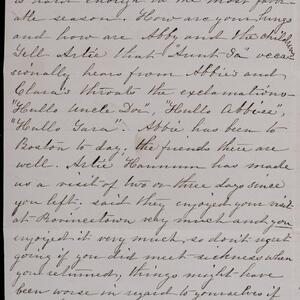 is hard enough in the most favor-
able season. How are your lungs
and how are Abby and the children
Tell Artie that "Aunt Sa" occa-
sionally hears from Abbie's and
Clara's throats the exclamations-
"Hullo Uncle Doe", "Hullo Abbise",
"Hullo Sara". Abbie has been to
Boston to day, the friends there are
well. Artie Hammum has made
us a visit of two or three days since
you left, said they enjoyed your visit
at Provincetown very much and you
enjoyed it very much, so don't regret
going if you did meet sickness when
you returned, things might have
been worse in regard to yourselves if